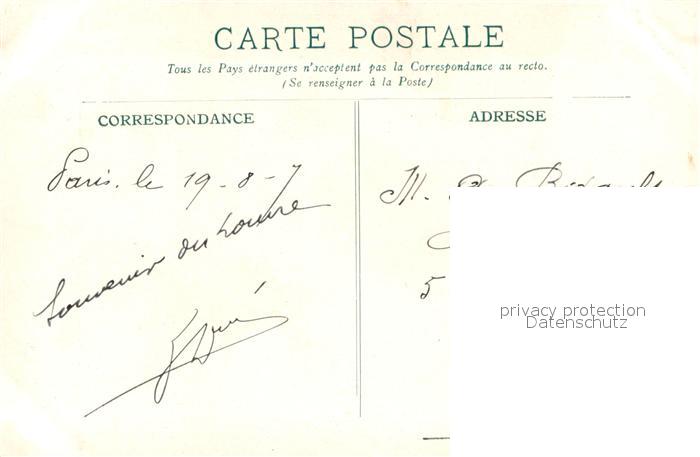 CARTE POSTALE
Tous les Pays étrangers n'acceptent pas la Correspondance au recto.
(Se renseigner à la Poste)
CORRESPONDANCE
ADRESSE
Paris. le 19-8-7
Souvenir du Louvre
M.
5
privacy protection
Datenschutz